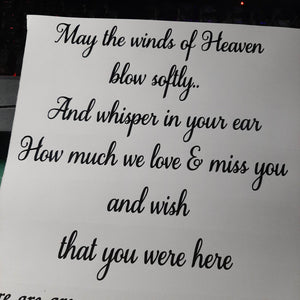 May the winds of Heaven
blow softly..
And whisper in your ear
How much we love & miss you
and wish
that you were here